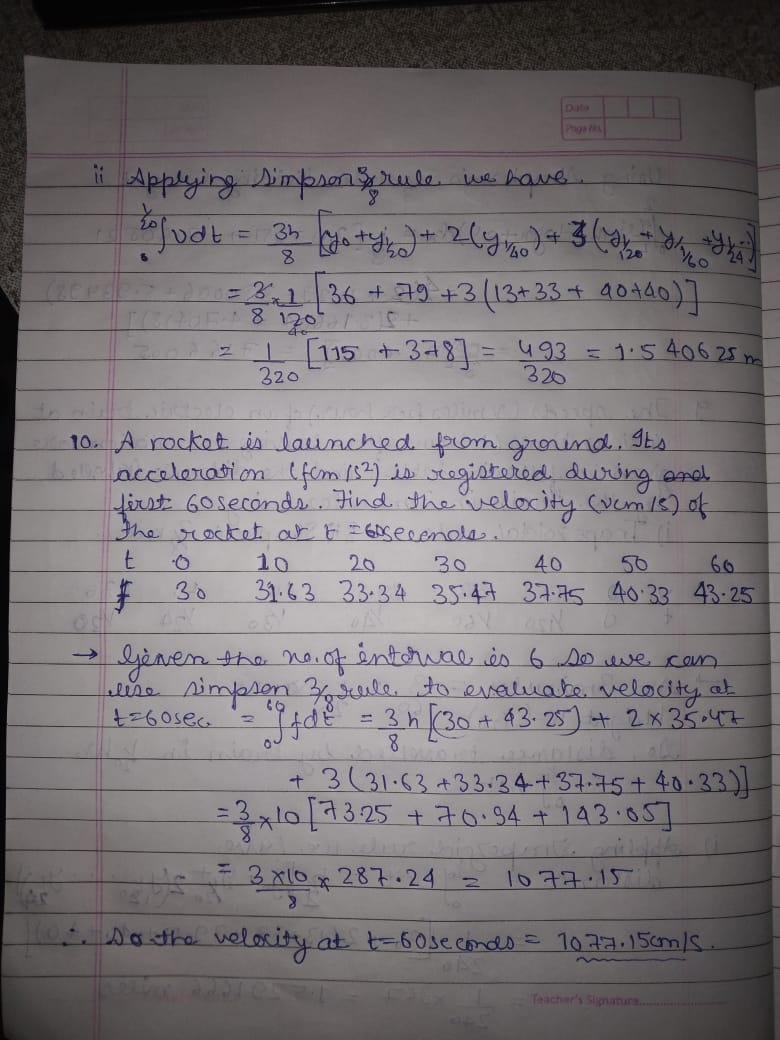 Date
Page No.
ii Applying Simpson 3/8 rule we have.
∫₀^{1/20} vdt = 3h/8 [(y₀ + y_{1/20}) + 2(y_{1/40}) + 3(y_{1/120} + y_{1/60} + y_{1/24}
= 3/8 × 1/120 [36 + 79 + 3(13+33 + 40+40)]
40
= 1/320 [115 + 378] = 493/320 = 1.540625 m
10. A rocket is launched from ground. Its
acceleration (fcm/s²) is registered during and
first 60 seconds. Find the velocity (vcm/s) of
the rocket at t = 60seconds.
t 0 10 20 30 40 50 60
f 30 31.63 33.34 35.47 37.75 40.33 43.25
→ Given the no. of interval is 6 so we can
use simpson 3/8 rule to evaluate velocity at
t=60sec. = ∫₀^{60} fdt = 3h/8 [(30 + 43.25) + 2×35.47
+ 3(31.63+33.34+37.75+40.33)]
= 3/8 × 10 [73.25 + 70.94 + 143.05]
= 3×10/8 × 287.24 = 1077.15
∴ So the velocity at t=60seconds = 1077.15cm/s.
Teacher's Signature..................